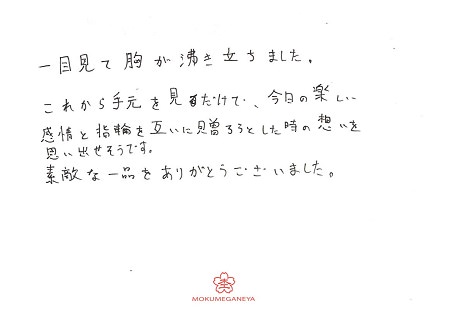 一目見て胸が沸き立ちました。
これから手元を見るだけで、今日の楽しい
感情と指輪を互いに贈ろうとした時の想いを
思い出せそうです。
素敵な一品をありがとうございました。
MOKUMEGANEYA